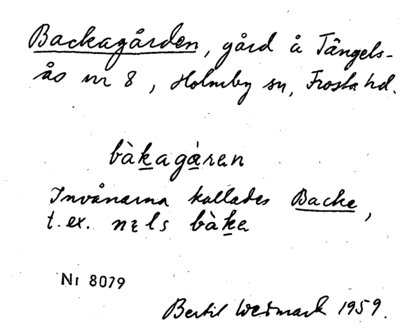 Backagården, gård å Tångels-
ås nr 8, Holmby sn, Frosta hd.
bàkagàran
Invånarna kallades Backe,
t.ex. nɪls bàka
Nr 8079
Bertil Wedmark 1959.